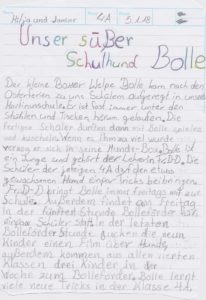 Hilja und Janner 4A 3.1.18
Unser süßer
Schulhund Bolle
Der kleine Boxer Welpe Bolle kam nach den
Osterferien zu uns Schülern aufgeregt in unsere
Martinusschule. Er ist fast immer unter den
Stühlen und Tischen herum gelaufen. Die
fertigen Schüler durften dann mit Bolle spielen
und kuscheln. Wenn es ihm zu viel wurde
verzog er sich in seine Hunde-Box. Bolle ist
ein Junge und gehört der Lehrerin Fr. D-D. Die
Schüler der jetzigen 4A durften dem etwas
gewachsenen Hund einige Tricks beibringen.
Fr. D-D bringt Bolle immer freitags mit zur
Schule. Außerdem findet am Freitag
in der fünften Stunde Bolleförder
einige Schüler statt in der letzten
Bolleförderstunde guckten die neun
Kinder einen Film über Hunde,
außerdem kommen aus allen vierten
Klassen drei Kinder in der
Woche zum Bolleförder. Bolle lernt
viele neue Tricks in der Klasse 4A.